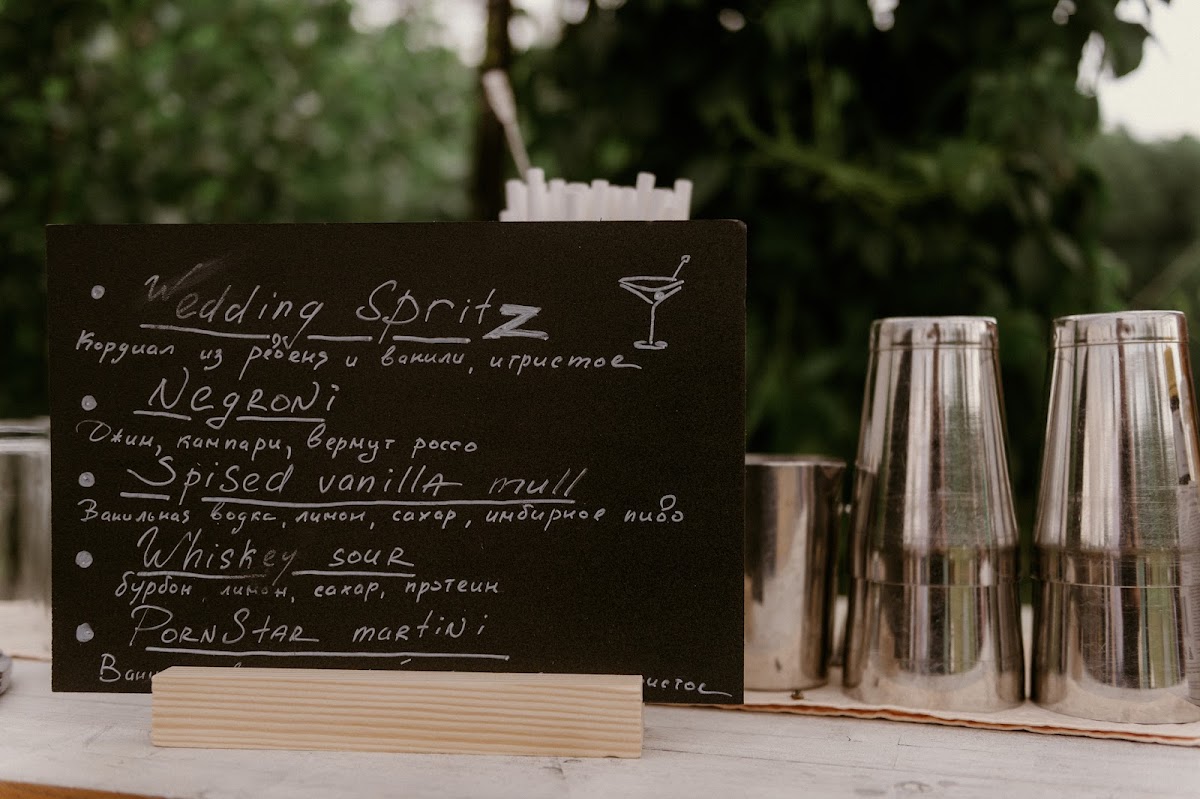 Wedding Spritz
Кордиал из ревеня и ванили, игристое
Negroni
Джин, кампари, вермут россо
Spised vanilla mull
Ванильная водка, лимон, сахар, имбирное пиво
Whiskey sour
бурбон, лимон, сахар, протеин
PornStar martini